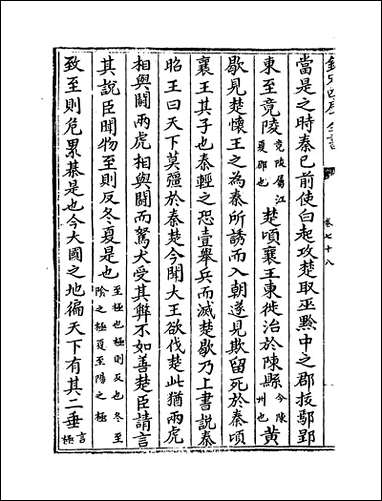 欽定四庫全書
卷七十八
當是之時秦已前使白起攻楚取巫黔中之郡拔鄢郢
東至竟陵竟陵屬江夏郡也楚頃襄王東徙治於陳縣今陳州也黃
歇見楚懷王之為秦所誘而入朝遂見欺留死於秦頃
襄王其子也秦輕之恐壹舉兵而滅楚歇乃上書說秦
昭王曰天下莫彊於秦楚今聞大王欲伐楚此猶兩虎
相與鬭兩虎相與鬭而駑犬受其弊不如善楚臣請言
其說臣聞物至則反冬夏是也至極也極則反也冬至陰之極夏至陽之極
致至則危累棊是也今大國之地徧天下有其二垂言極